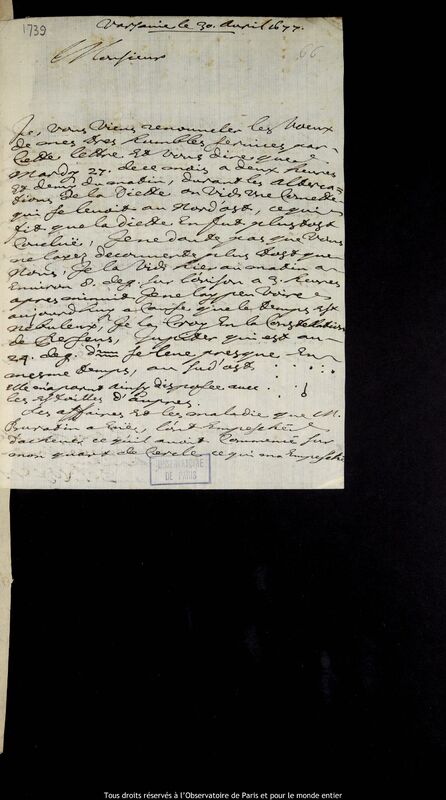 1739
Varsavie le 30. Avril 1677.
66
Monsieur
Je vous viens renouveler les voeux
de mes tres humbles services par
cette lettre et vous dire que
Mardy 27. de ce mois a deux heures
et demi du matin, durant les alterca-
tions de la Diette on vid une Comette
qui se levoit au Nordost, ce qui
fit que la diette en fut plustost
Conclue, Je ne doute pas que vous
ne l'ayez decouverte plus tost que
Nous, Je la vids hier au matin a
Environ 8. deg. sur l'orison a 3. heures
apres minuit Je ne l'ay peu voir
aujourd'huy a cause que le temps est
nebuleux, Je la Croy En la Constellation
de Persens, Jupiter qui est au
24. deg. d' se leve presque En
mesme temps, au sud'ost
Elle m'a parut ainsy disposée avec
les Estoilles d'aupres.
Les affaires et les maladie que M.
Buratin a eües, l'ont Empesché
d'achever ce qu'il avoit Commencé sur
mon quart de Cercle ce qui m'a Empesché
OBSERVATOIRE
DE PARIS
Tous droits réservés à l'Observatoire de Paris et pour le monde entier